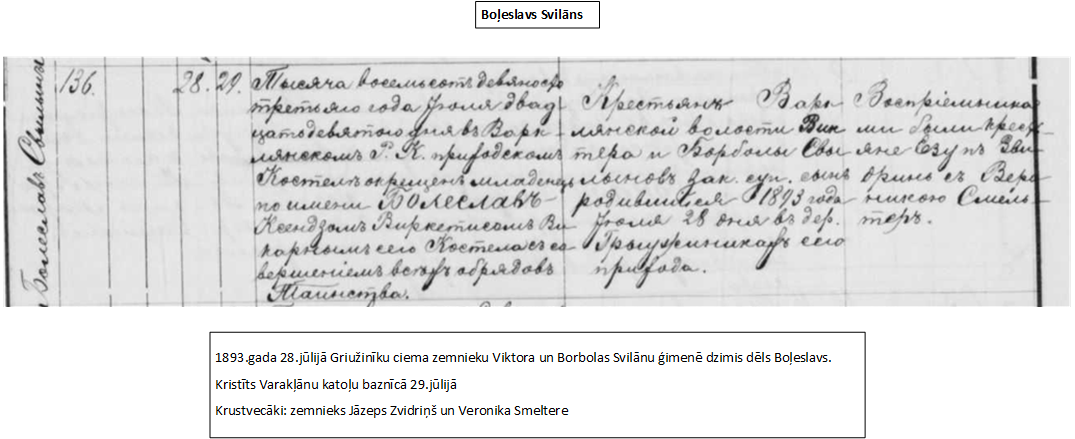 Boļeslavs Svilāns
Болеславъ Свилинъ
136.
28. 29.
Тысяча восемьсотъ девяносто
третьяго года Іюля двад-
цать девятого дня въ Варк-
лянскомъ Р. К. приходскомъ
Костелѣ окрещенъ младенецъ
по имени Болеславъ
Ксендзомъ Виркетисомъ Ви-
карнымъ сего Костела съ со-
вершеніемъ всѣхъ обрядовъ
Таинства.
Крестьянъ Варк
лянской волости Вик
тера и Борболы Сви
лыновъ зак. суп. сынъ
родившійся 1893 года
Іюля 28 дня въ дер.
Грыужиникахъ сего
прихода.
Воспріемника
ми были крест
яне Езупъ Зви
дринь съ Веро
никою Смель-
теръ.
1893.gada 28.jūlijā Griužinīku ciema zemnieku Viktora un Borbolas Svilānu ģimenē dzimis dēls Boļeslavs.
Kristīts Varakļānu katoļu baznīcā 29.jūlijā
Krustvecāki: zemnieks Jāzeps Zvidriņš un Veronika Smeltere